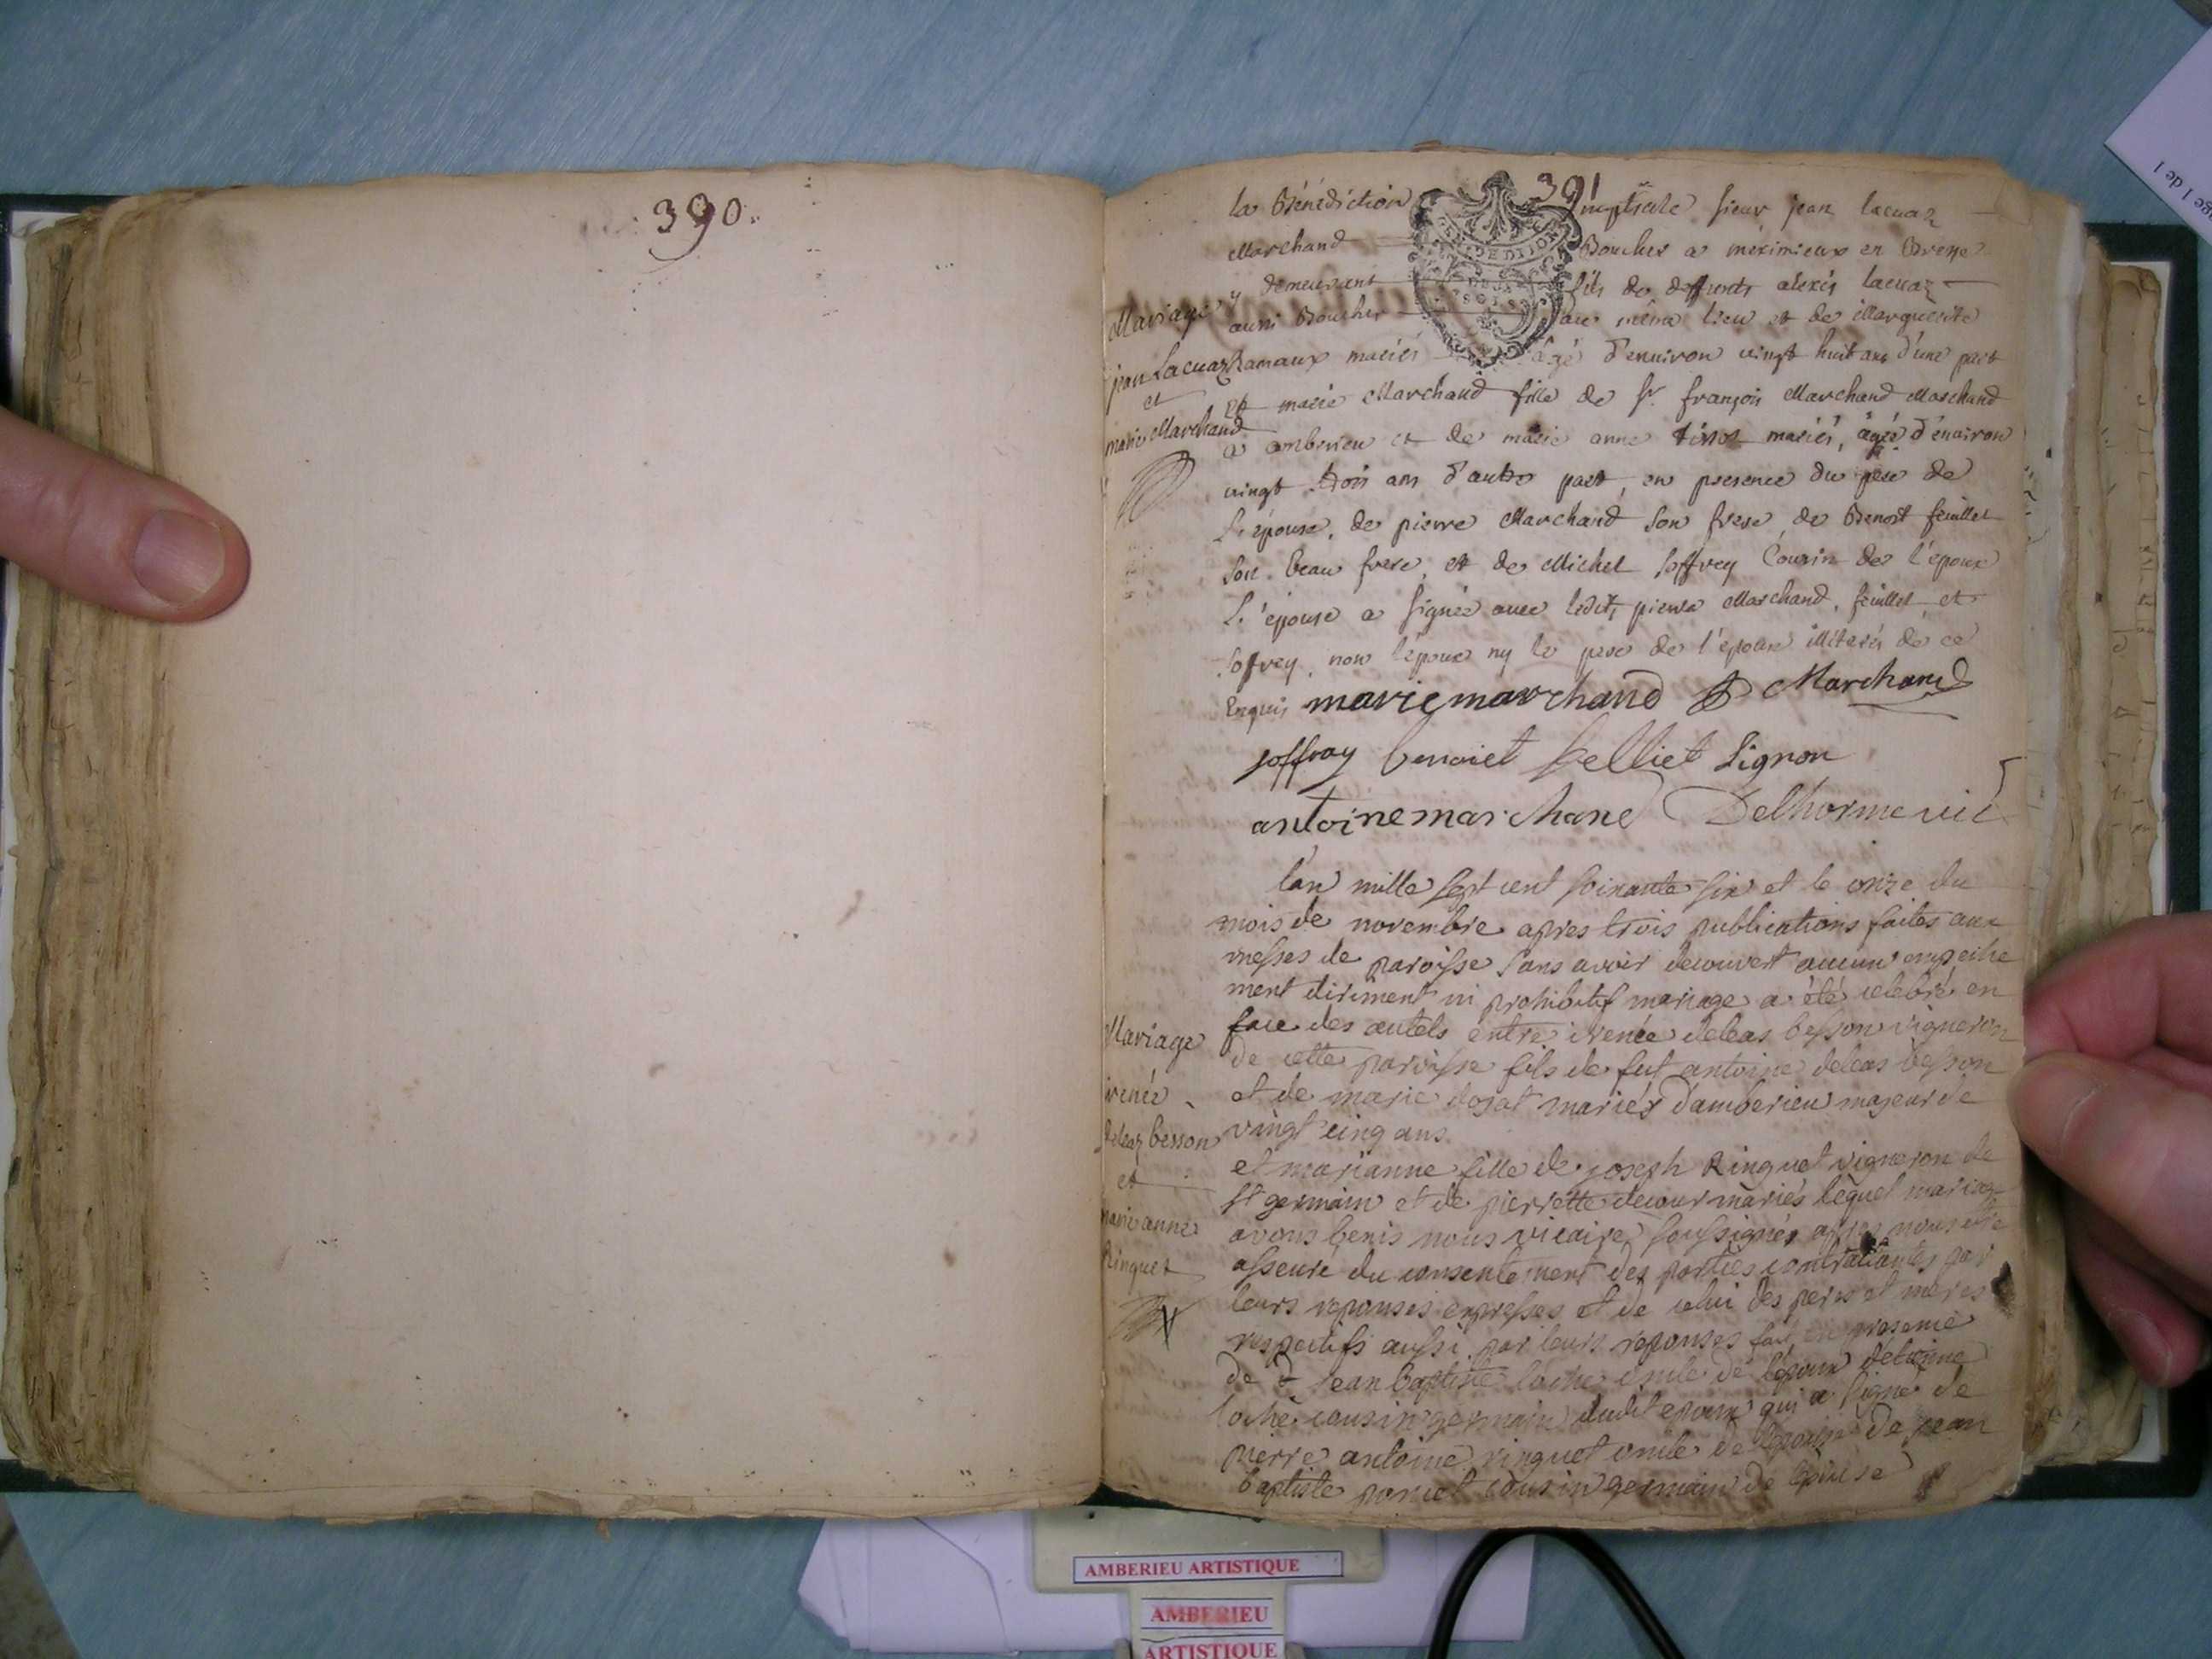 390.
391
la Bénédiction nuptiale sieur jean lacuaz
Marchand Boucher a meximieux en Bresse
y demeurant fils de deffunts alexis lacuaz
aussi Boucher au même lieu et de Marguerite
Ramaux mariés âgé d'environ vingt huit ans d'une part
Et marie Marchand fille de sr. françois Marchand Marchand
a amberieu et de marie anne tissot mariés, âgée d'environ
vingt trois ans d'autre part, en presence du pere de
L'épouse, de pierre Marchand son frere, de Benoit feuillet
son beau frere, et de Michel joffrey Cousin de l'epoux
L'épouse a signée avec ledit pierre Marchand, feuillet et
joffrey, non l'epoux ny le pere de l'epouse illiterés de ce
Enquis marie marchand P Marchand
joffray benoiet felliet Lignon
antoine marchand Delhorme vic
Mariage
jean Lacuaz
et
marie Marchand
l'an mille sept cent soixante six et le onze du
mois de novembre apres trois publications faites aux
messes de paroisse sans avoir decouvert aucun empeche
ment diriment ni prohibitif mariage a été celebré en
face des autels entre irenée deleas besson vigneron
de cette paroisse fils de fut antoine deleas besson
et de marie dojat mariés d'amberieu majeur de
vingt cinq ans
et marianne fille de joseph Ringuet vigneron de
st germain et de pierrette decour mariés lequel mariage
avons benis nous vicaire soussigné apres nous etre
asseuré du consentement des parties contractantes par
leurs reponses expresses et de celui des peres et meres
respectifs aussi par leurs reponses fait en presence
de jean baptiste loche oncle de l'epoux d'etienne
loche cousin germain dudit epoux qui a signé de
pierre antoine ringuet oncle de l'epouse de jean
baptiste poncet cousin germain de l'epouse
Mariage
irenée
deleaz besson
et
marie anne
Ringuet
AMBERIEU ARTISTIQUE
AMBERIEU
ARTISTIQUE